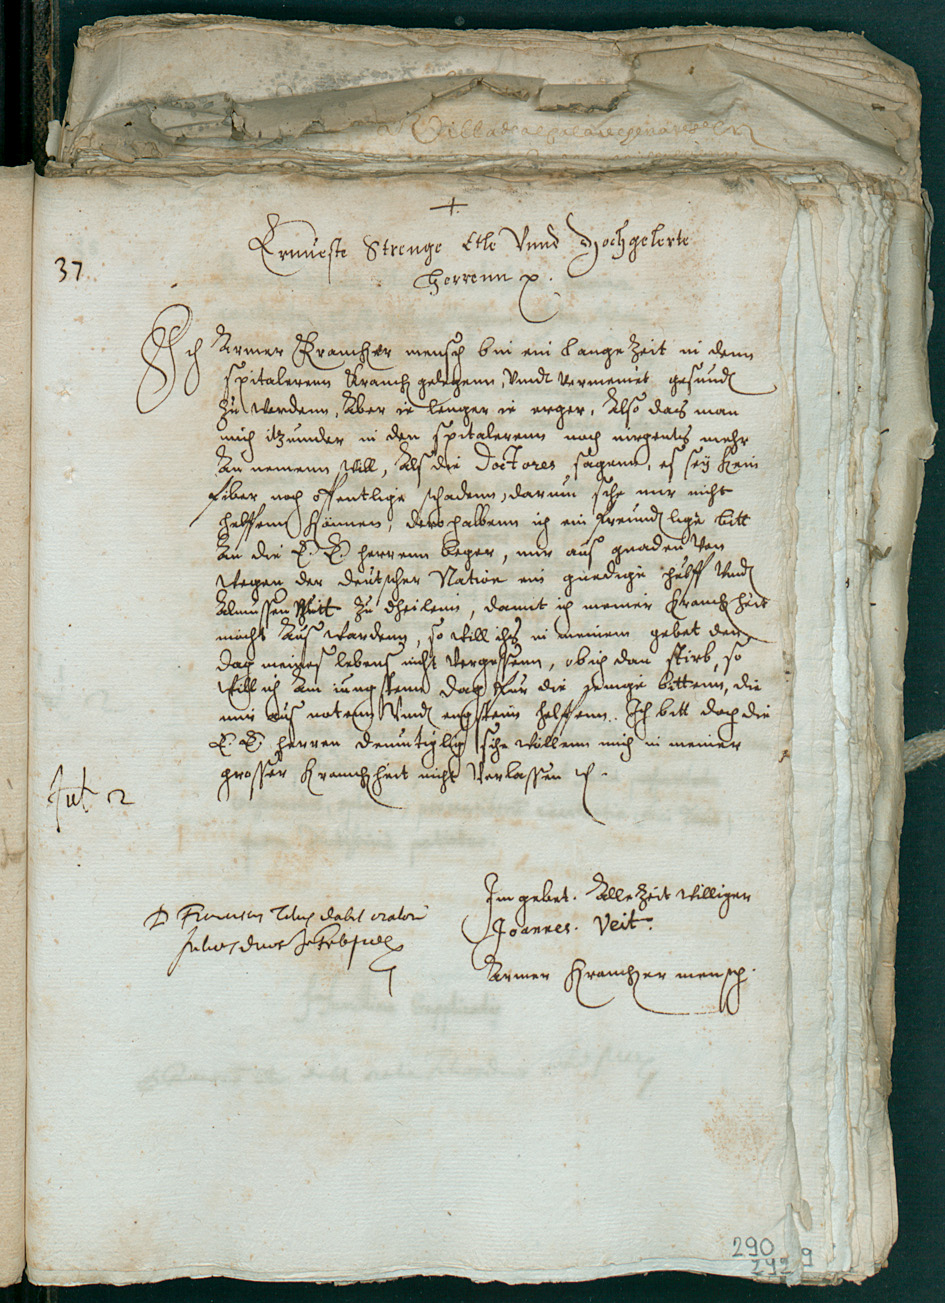 +
Ernueste Strenge Etle Vnnd Hochgelerte
Herrenn
37
Ich Armer Krancker mensch bin ein Lange Zeit in denn
spitalerenn Kranck gelegenn, Vnnd vermeint gesundt
zu werdenn, Aber ie lenger ie erger, Also das man
mich itzunder in den spitalerenn noch nirgents mehr
An nemenn will, Als die Doctores sagenn, es sey kein
fiber noch offentlige schadenn, darum sihe mir nicht
helffenn konnen, derohalbenn ich ein freundlige bitt
An die E. E. herrenn beger, mir aus gnaden Von
wegen der deutscher Nation ein gnedige hulff Vnd
Almussen Mitt zu dheilenn, damit ich meiner kranckheit
mocht Aus warden, so will ichs in meinem gebet den
dag meines lebens nicht Vergessenn, ob ich dan stirb, so
will ich Am iungstenn dag Fur die Jenige bittenn, die
mir aus notenn Vnnd engstenn helffenn. Ich bitt doch die
E. E. herren demutiglig sihe wollenn mich in meiner
grosser kranckheit nicht Verlassen
Im gebet. Alle Zeit williger
Joannes. Veit.
Armer Krancker mensch.
dabit oratori
290
292